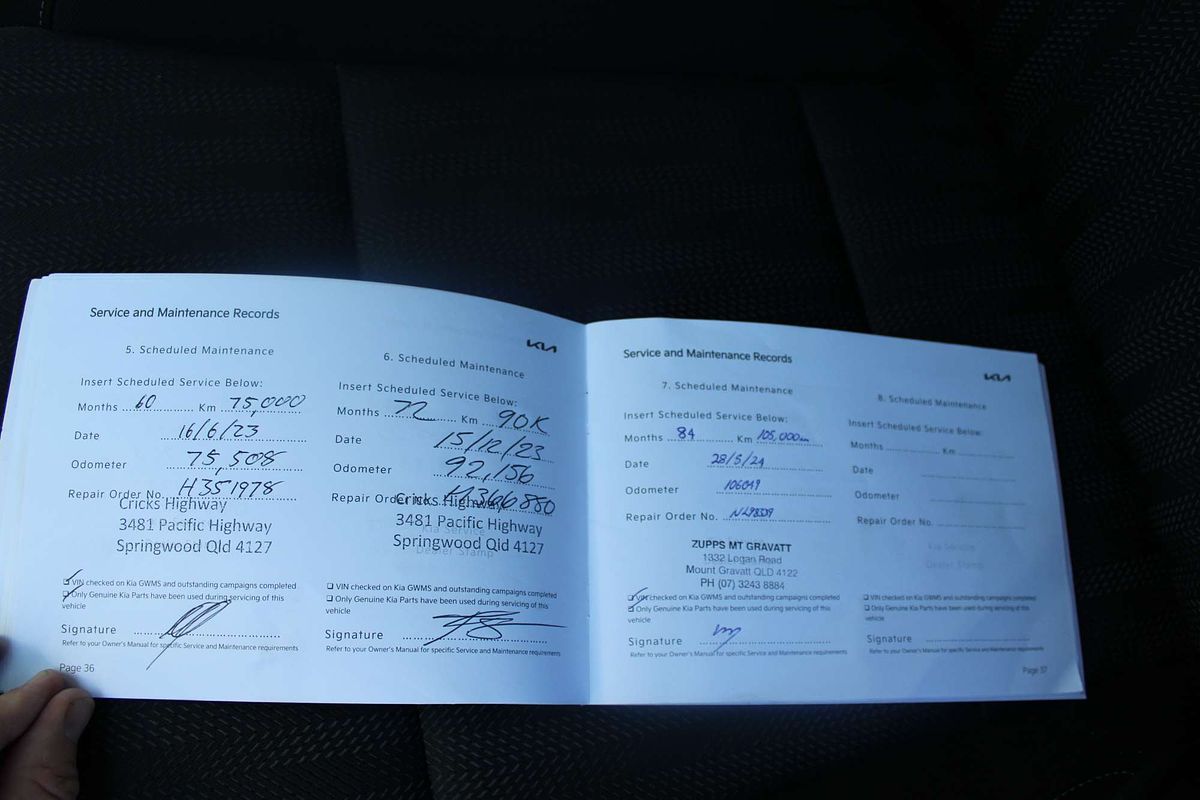 Service and Maintenance Records
KIA
5. Scheduled Maintenance
Insert Scheduled Service Below:
Months 60 Km 75,000
Date 16/6/23
Odometer 75,508
Repair Order No. H351978
Cricks Highway
3481 Pacific Highway
Springwood Qld 4127
VIN checked on Kia GWMS and outstanding campaigns completed
Only Genuine Kia Parts have been used during servicing of this
vehicle
Signature
Refer to your Owner's Manual for specific Service and Maintenance requirements
Page 36
6. Scheduled Maintenance
Insert Scheduled Service Below:
Months 72 Km 90K
Date 15/12/23
Odometer 92,156
Repair Order No. H366880
Cricks Highway
3481 Pacific Highway
Springwood Qld 4127
Dealer Stamp
VIN checked on Kia GWMS and outstanding campaigns completed
Only Genuine Kia Parts have been used during servicing of this
vehicle
Signature
Refer to your Owner's Manual for specific Service and Maintenance requirements
Service and Maintenance Records
KIA
7. Scheduled Maintenance
Insert Scheduled Service Below:
Months 84 Km 105,000
Date 28/5/24
Odometer 106049
Repair Order No.
ZUPPS MT GRAVATT
1332 Logan Road
Mount Gravatt QLD 4122
PH (07) 3243 8884
VIN checked on Kia GWMS and outstanding campaigns completed
Only Genuine Kia Parts have been used during servicing of this
vehicle
Signature
Refer to your Owner's Manual for specific Service and Maintenance requirements
8. Scheduled Maintenance
Insert Scheduled Service Below:
Months Km
Date
Odometer
Repair Order No.
Kia Service
Dealer Stamp
VIN checked on Kia GWMS and outstanding campaigns completed
Only Genuine Kia Parts have been used during servicing of this
vehicle
Signature
Refer to your Owner's Manual for specific Service and Maintenance requirements
Page 37